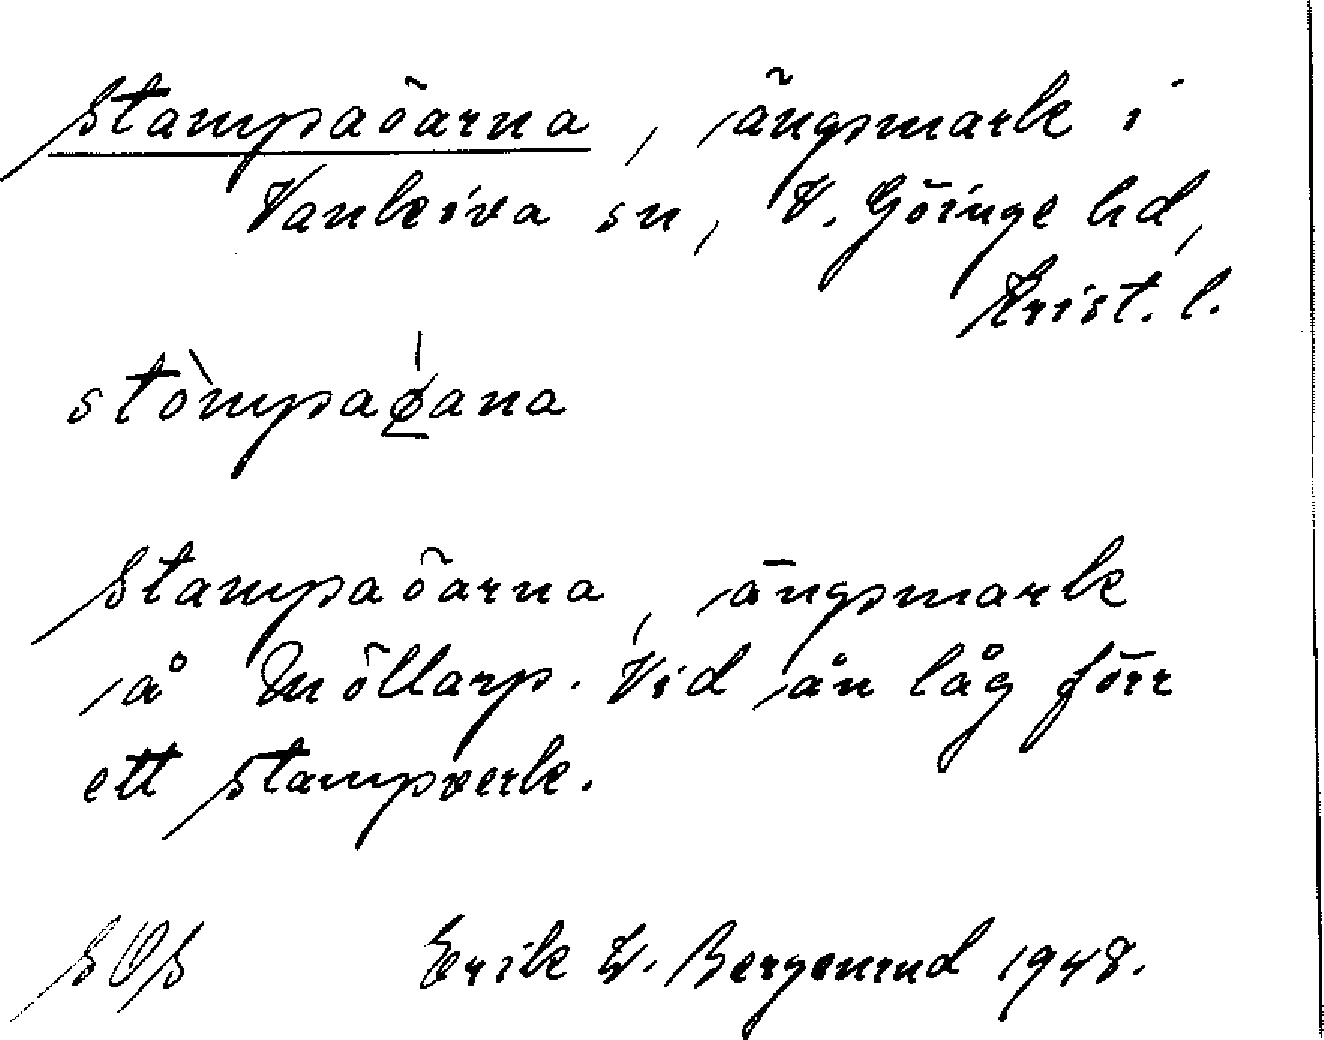 Stampaöarna, ängsmark i
Vankiva sn, V. Göinge hd,
Krist. l.
stòmpaǿ̱ana
Stampaöarna, ängsmark
å Möllarp. Vid ån låg förr
ett stampverk.
SOS Erik W. Bergenrud 1948.